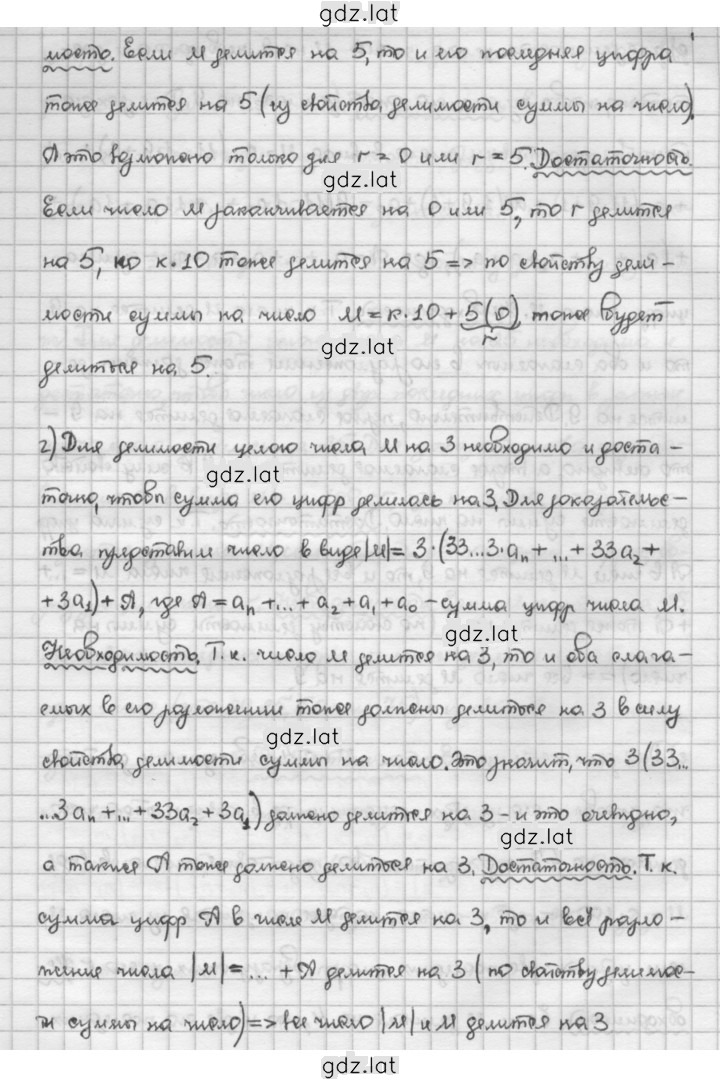 gdz.lat
мость. Если M делится на 5, то и его последняя цифра
тоже делится на 5 (из свойства делимости суммы на число).
А это возможно только для r = 0 или r = 5. Достаточность.
gdz.lat
Если число M заканчивается на 0 или 5, то r делится
на 5, но к·10 тоже делится на 5 => по свойству дели-
мости суммы на число M = к·10 + 5(0) тоже будет
r
gdz.lat
делиться на 5.
г) Для делимости целого числа M на 3 необходимо и доста-
gdz.lat
точно, чтобы сумма его цифр делилась на 3. Для доказательс-
тва, представим число в виде |M| = 3·(33...3·aₙ + ... + 33a₂ +
+ 3a₁) + A, где A = aₙ + ... + a₂ + a₁ + a₀ – сумма цифр числа M.
gdz.lat
Необходимость. Т.к. число M делится на 3, то и оба слага-
емых в его разложении тоже должны делиться на 3 в силу
gdz.lat
свойства делимости суммы на число. Это значит, что 3(33...
...3aₙ + ... + 33a₂ + 3a₁) должно делиться на 3 – и это очевидно,
gdz.lat
а также A тоже должно делиться на 3. Достаточность. Т.к.
сумма цифр A в числе M делится на 3, то и всё разло-
жение числа |M| = ... + A делится на 3 (по свойству делимос-
ти суммы на число) => все число |M| и M делится на 3
gdz.lat